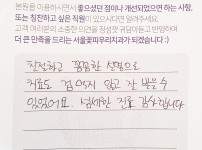 본원을 이용하시면서 좋으셨던 점이나 개선되었으면 하는 사항,
또는 칭찬하고 싶은 직원이 있으시다면 알려주세요.
고객 여러분의 소중한 의견을 정성껏 귀담아듣고 반영하여
더 큰 만족을 드리는 서울꽃피우리치과가 되겠습니다 :)
친절하고 꼼꼼한 설명으로
치료도 겁 먹지 않고 잘 받을 수
있었어요. 섬세한 진료 감사합니다